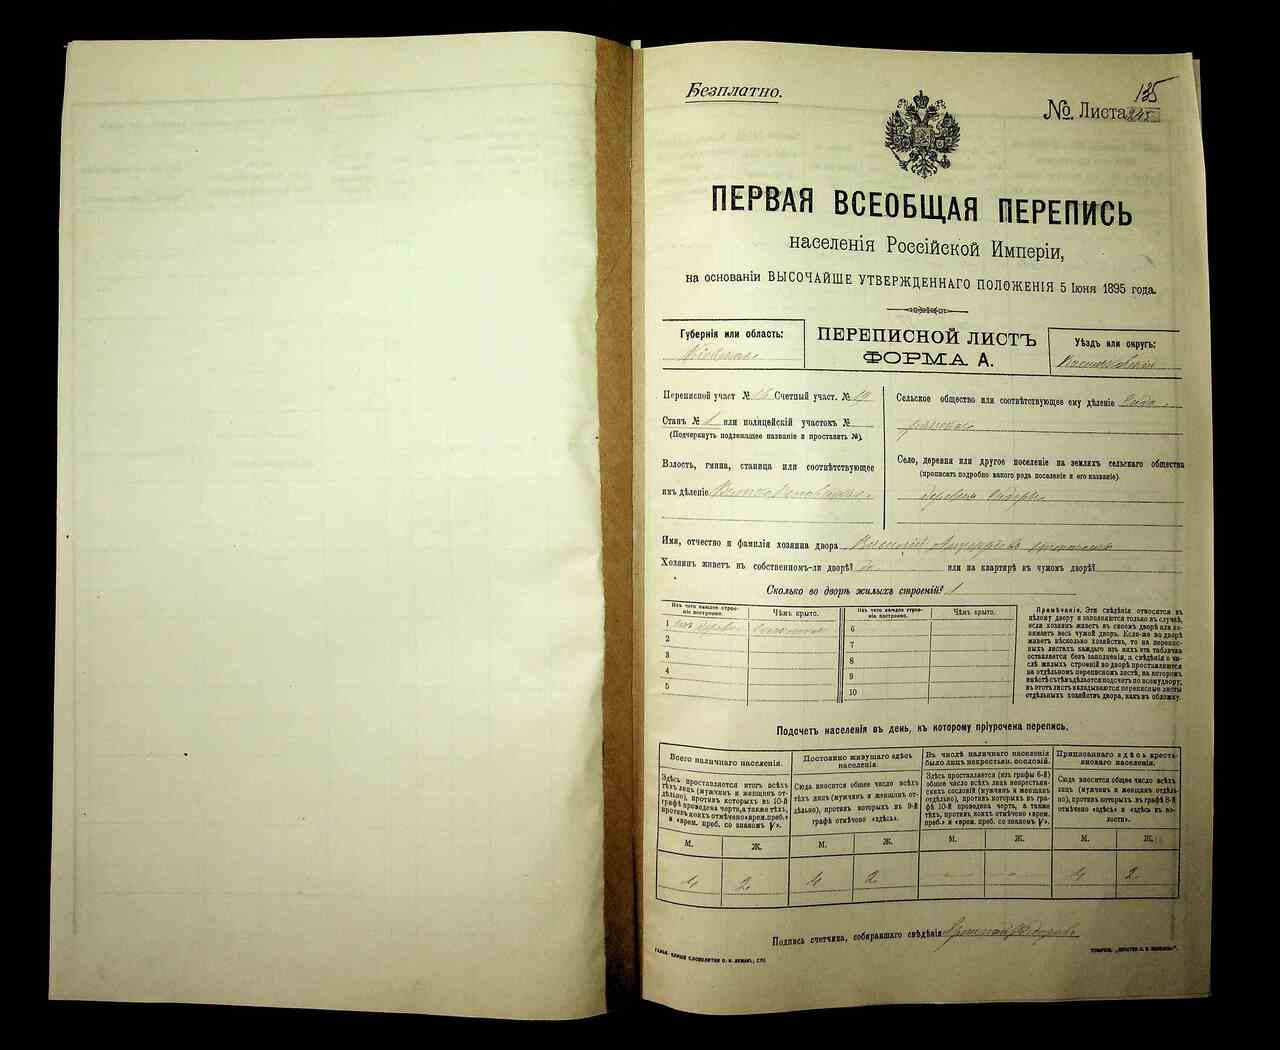 Безплатно.
135
№ Листа 245
ПЕРВАЯ ВСЕОБЩАЯ ПЕРЕПИСЬ
населенія Россійской Имперіи,
на основаніи ВЫСОЧАЙШЕ УТВЕРЖДЕННАГО ПОЛОЖЕНІЯ 5 Іюня 1895 года.
Губернія или область:
Кіевская
ПЕРЕПИСНОЙ ЛИСТЪ
ФОРМА А.
Уѣздъ или округъ:
Васильковскій
Переписной участ. № 16 Счетный участ. № 19
Станъ № 1 или полицейскій участокъ №
(Подчеркнуть подлежащее названіе и проставить №).
Волость, гмина, станица или соотвѣтствующее
имъ дѣленіе
Сельское общество или соотвѣтствующее ему дѣленіе
Село, деревня или другое поселеніе на земляхъ сельскаго общества
(прописать подробно какого рода поселеніе и его названіе).
деревня
Имя, отчество и фамилія хозяина двора Василий
Хозяинъ живетъ въ собственномъ-ли дворѣ? да или на квартирѣ въ чужомъ дворѣ?
Сколько во дворѣ жилыхъ строеній? 1
Изъ чего каждое строеніе построено. Чѣмъ крыто. Изъ чего каждое строеніе построено. Чѣмъ крыто.
1 изъ дерева соломою 6
2 7
3 8
4 9
5 10
Примѣчаніе. Эти свѣдѣнія относятся къ
цѣлому двору и заполняются только въ случаѣ,
если хозяинъ живетъ въ своемъ дворѣ или занимаетъ
весь чужой дворъ. Если-же во дворѣ
живетъ нѣсколько хозяйствъ, то на переписныхъ
листахъ каждаго изъ нихъ эта табличка
оставляется безъ заполненія, а свѣдѣнія о числѣ
жилыхъ строеній во дворѣ проставляются
на отдѣльномъ переписномъ листѣ, на которомъ
вмѣстѣ съ тѣмъ дѣлается подсчетъ по всему двору;
въ этотъ листъ вкладываются переписные листы
отдѣльныхъ хозяйствъ двора, какъ въ обложку.
Подсчетъ населенія въ день, къ которому пріурочена перепись.
Всего наличнаго населенія.
Здѣсь проставляется итогъ всѣхъ
тѣхъ лицъ (мужчинъ и женщинъ отдѣльно),
противъ которыхъ въ 10-й
графѣ проведена черта, а также тѣхъ,
противъ коихъ отмѣчено «врем. преб.»
и «врем. преб. со знакомъ V».
Постоянно живущаго здѣсь
населенія.
Сюда вносится общее число всѣхъ
тѣхъ лицъ (мужчинъ и женщинъ отдѣльно),
противъ которыхъ въ 9-й
графѣ отмѣчено «здѣсь».
Въ числѣ наличнаго населенія
было лицъ некрестьян. сословій.
Здѣсь проставляется (изъ графы 6-й)
общее число всѣхъ лицъ некрестьянскихъ
сословій (мужчинъ и женщинъ
отдѣльно), противъ которыхъ въ графѣ
10-й проведена черта, а также
тѣхъ, противъ коихъ отмѣчено «врем.
преб.» и «врем. преб. со знакомъ V».
Приписаннаго здѣсь крестьянскаго
населенія.
Сюда вносится общее число всѣхъ
лицъ (мужчинъ и женщинъ отдѣльно),
противъ которыхъ въ графѣ 8-й
отмѣчено «здѣсь» и «здѣсь въ волости».
М. Ж. М. Ж. М. Ж. М. Ж.
4 2 4 2 - - 4 2
Подпись счетчика, собиравшаго свѣдѣнія